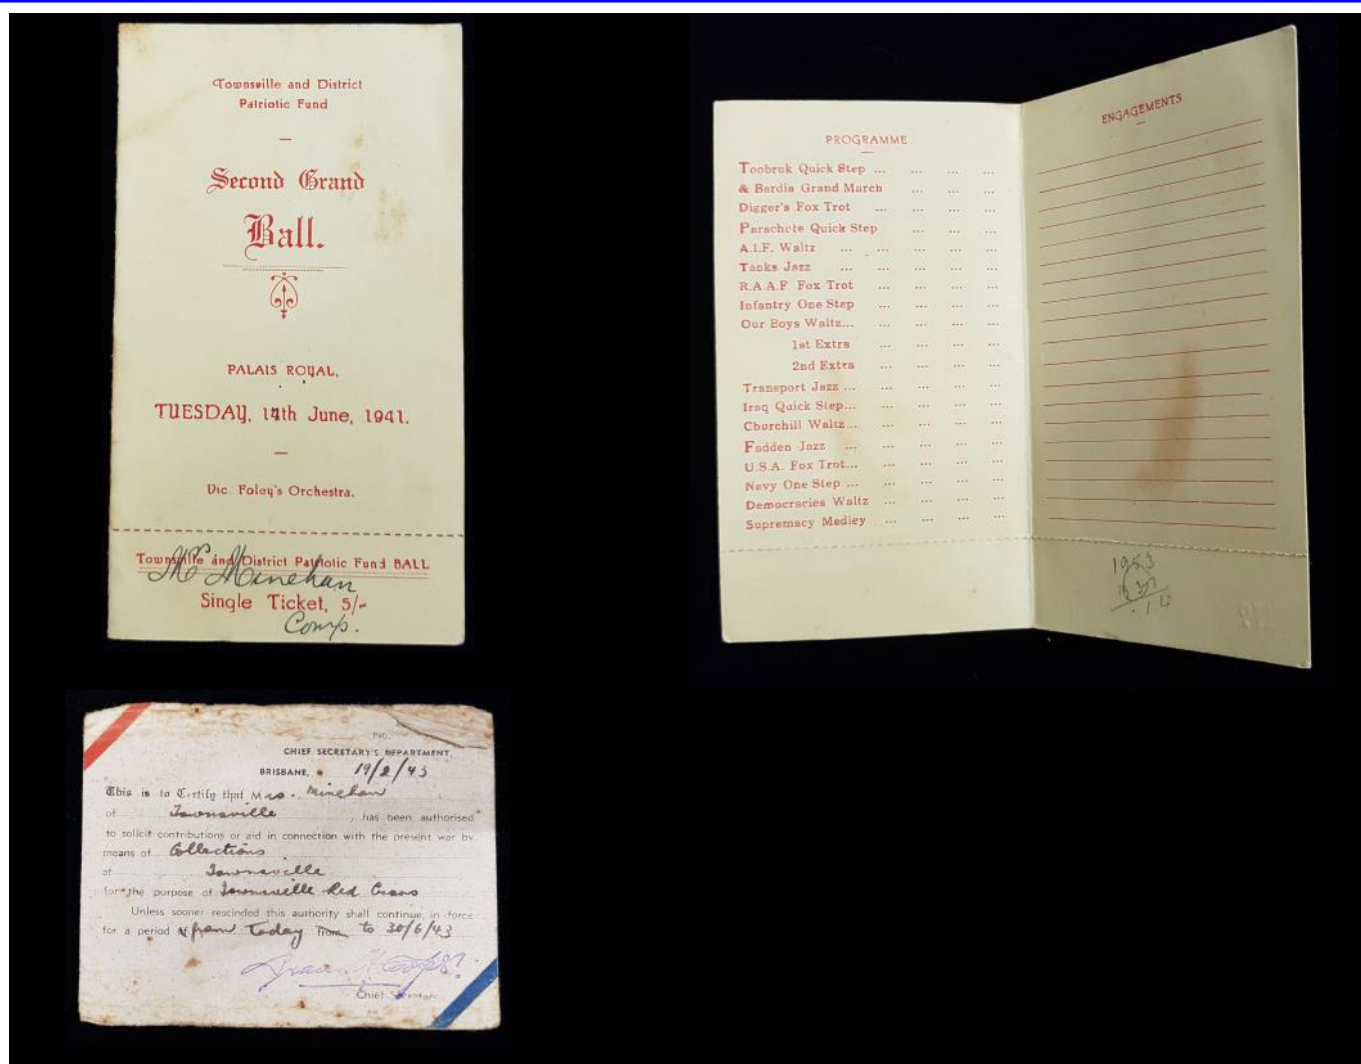 Townsville and District
Patriotic Fund
Second Grand
Ball.
PALAIS ROYAL,
TUESDAY, June, 1941.
Vic. Foley's Orchestra.
Townsville and District Patriotic Fund BALL
Minehan
Single Ticket, 5/-
Comp.
PROGRAMME
Toobruk Quick Step ... ... ... ...
& Bardia Grand March ... ... ...
Digger's Fox Trot ... ... ... ...
Parachute Quick Step ... ... ...
A.I.F. Waltz ... ... ... ...
Tanks Jazz ... ... ... ...
R.A.A.F Fox Trot ... ... ... ...
Infantry One Step ... ... ... ...
Our Boys Waltz... ... ... ...
1st Extra ... ... ... ...
2nd Extra ... ... ... ...
Transport Jazz ... ... ... ...
Iraq Quick Step... ... ... ...
Churchill Waltz... ... ... ...
Fadden Jazz ... ... ... ...
U.S.A. Fox Trot... ... ... ...
Navy One Step ... ... ... ...
Democracies Waltz ... ... ... ...
Supremacy Medley ... ... ... ...
ENGAGEMENTS
1953
No.
CHIEF SECRETARY'S DEPARTMENT,
BRISBANE, 19/2/43
This is to Certify that Mrs. Minehan
of Townsville, has been authorised
to solicit contributions or aid in connection with the present war by
means of Collections
at Townsville
for the purpose of Townsville Red Cross
Unless sooner rescinded this authority shall continue in force
for a period from Today From to 30/6/43
Chief Secretary